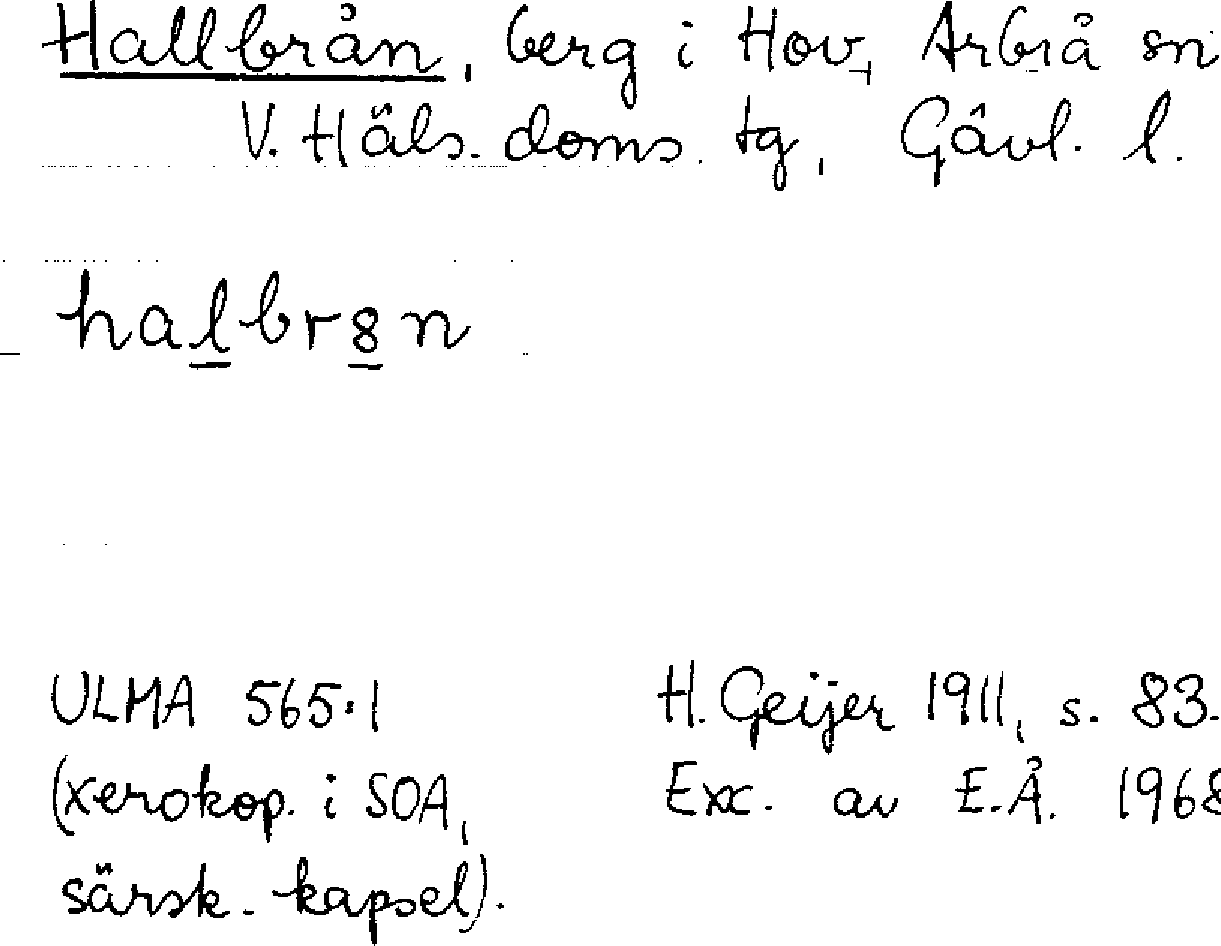 Hallbrån, berg i Hov, Arbrå sn
V. Häls. doms. tg, Gävl. l.
halbr8n
ULMA 565:1
(xerokop. i SOA,
särsk. kapsel).
H. Geijer 1911, s. 83.
Exc. av E.Å. 1968